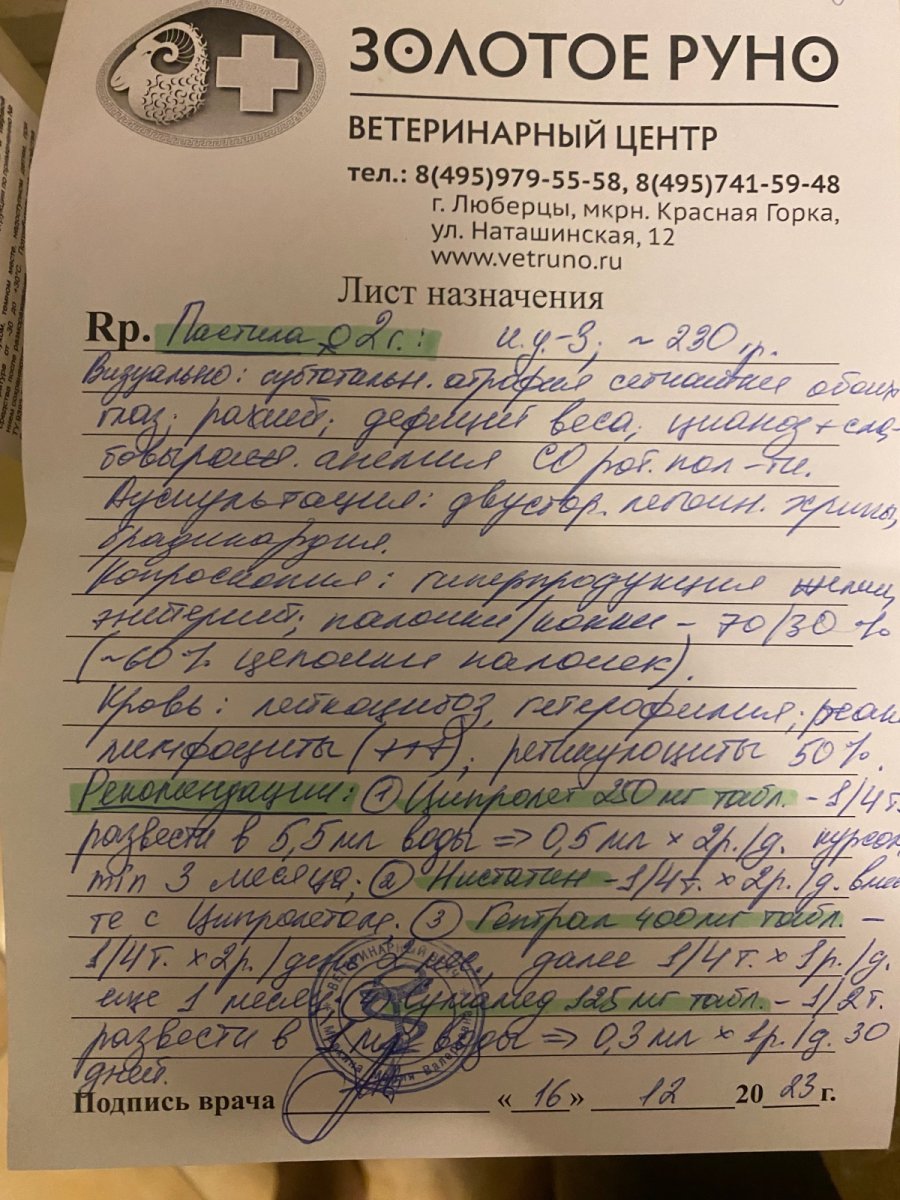 ЗОЛОТОЕ РУНО
ВЕТЕРИНАРНЫЙ ЦЕНТР
тел.: 8(495)979-55-58, 8(495)741-59-48
г. Люберцы, мкрн. Красная Горка,
ул. Наташинская, 12
www.vetruno.ru
Лист назначения
Rp. Пастила 2 г.: и.у-3; ~ 230 гр.
Визуально: субтотальн. атрофия сетчатки обоих
глаз; рахит; дефицит веса; цианоз + сла-
бовыраж. анемия СО рот. пол-ти.
Аускультация: двустор. легочн. хрипы,
брадикардия.
Копроскопия: гиперпродукция желчи,
энтерит; палочки/кокки - 70/30 %
(~60% цепочки палочек).
Кровь: лейкоцитоз, гетерофилия; реак.
лимфоциты (+++); ретикулоциты 50%.
Рекомендации: ① Ципролет 250 мг табл. - 1/4 т.
развести в 5,5 мл воды => 0,5 мл × 2р./д. курсом
min 3 месяца; ② Нистатин - 1/4 т. × 2р./д. вмес
те с Ципролетом. ③ Гептрал 400 мг табл. -
1/4 т. × 2р./день далее 1/4 т. × 1р./д.
еще 1 месяц. 125 мг табл. - 1/2 т.
развести в мл воды => 0,3 мл × 1р./д. 30
дней.
Подпись врача «16» 12 2023 г.